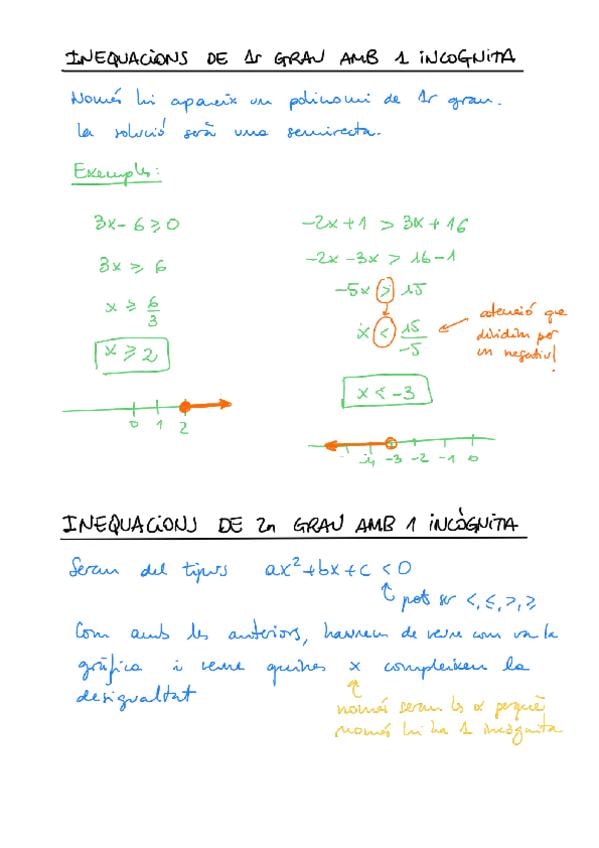 INEQUACIONS DE 1r GRAU AMB 1 INCOGNITA
Només hi apareix un polinomi de 1r grau.
La solució serà una semirecta.
Exemples:
3x - 6 ≥ 0
3x ≥ 6
x ≥ 6/3
x ≥ 2
0 1 2
-2x + 1 > 3x + 16
-2x - 3x > 16 - 1
-5x > 15
x < 15/-5
atenció que
dividim por
un negatiu!
x < -3
-4 -3 -2 -1 0
INEQUACIONS DE 2n GRAU AMB 1 INCÒGNITA
Seran del tipus ax²+bx+c < 0
pot ser <, ≤, >, ≥
Com amb les anteriors, haurem de veure com va la
gràfica i veure quines x compleixen la
desigualtat
només seran les x perquè
només hi ha 1 incògnita